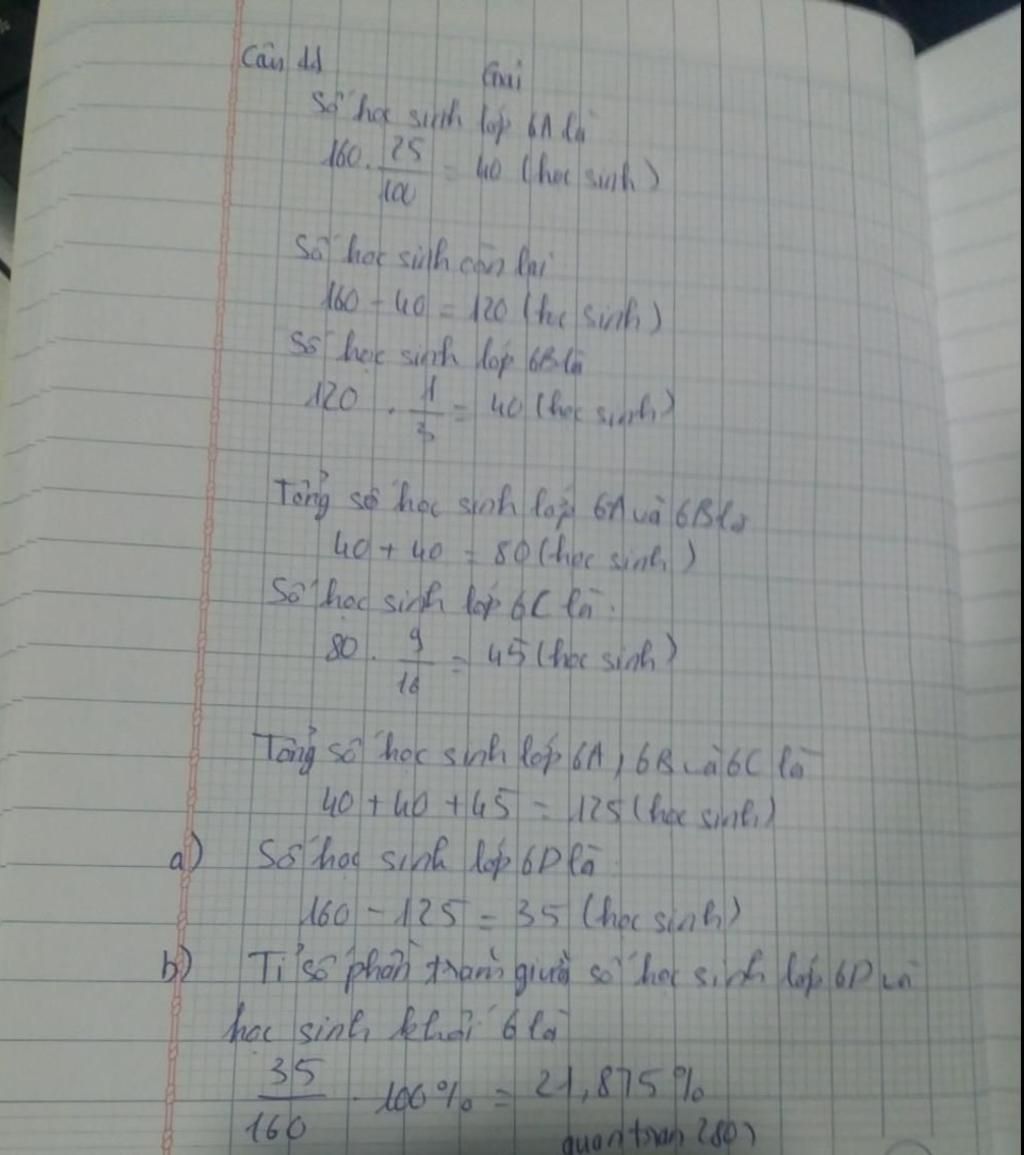 Câu 11
Giải
Số học sinh lớp 6A là
160 . 25/100 = 40 (học sinh)
Số học sinh còn lại
160 - 40 = 120 (học sinh)
Số học sinh lớp 6B là
120 . 1/3 = 40 (học sinh)
Tổng số học sinh lớp 6A và 6B là
40 + 40 = 80 (học sinh)
Số học sinh lớp 6C là:
80 . 9/16 = 45 (học sinh)
Tổng số học sinh lớp 6A, 6B và 6C là
40 + 40 + 45 = 125 (học sinh)
a) Số học sinh lớp 6D là
160 - 125 = 35 (học sinh)
b) Tỉ số phần trăm giữa số học sinh lớp 6D và
học sinh khối 6 là
35/160 . 100% = 21,875%
quantran2801